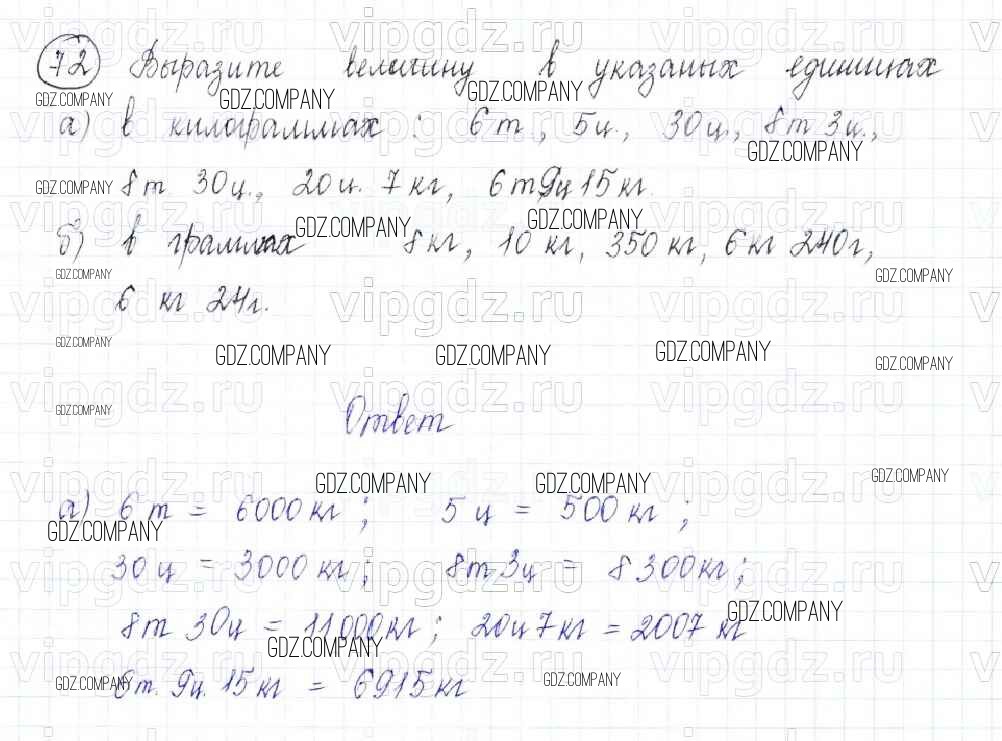 72 Выразите величину в указаных единицах
а) в килограммах: 6 т, 5 ц., 30 ц., 8 т 3 ц.,
8 т 30 ц., 20 ц. 7 кг, 6 т 9ц 15 кг.
б) в граммах 8 кг, 10 кг, 350 кг, 6 кг 240 г,
6 кг 24 г.
Ответ
а) 6 т = 6000 кг; 5 ц = 500 кг;
30 ц = 3000 кг; 8 т 3 ц = 8300 кг;
8 т 30 ц = 11000 кг; 20 ц 7 кг = 2007 кг
6 т. 9 ц. 15 кг = 6915 кг
vipgdz.ru
GDZ.COMPANY